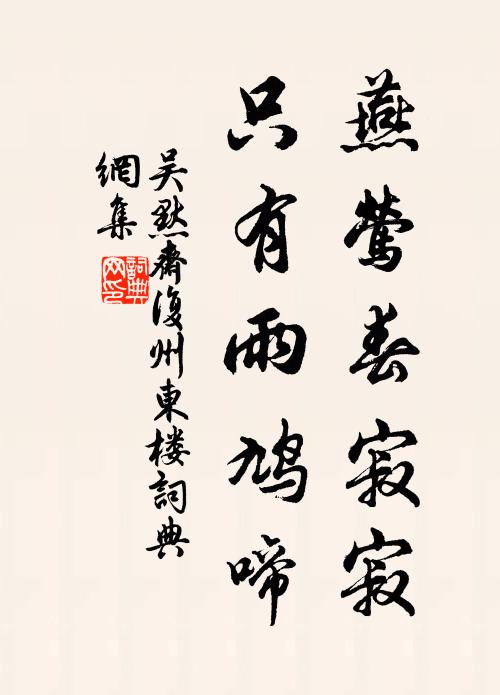 燕鶯春寂寂
只有雨鳩啼
吴默齋復州東楼詞典
網集
詞典
网印